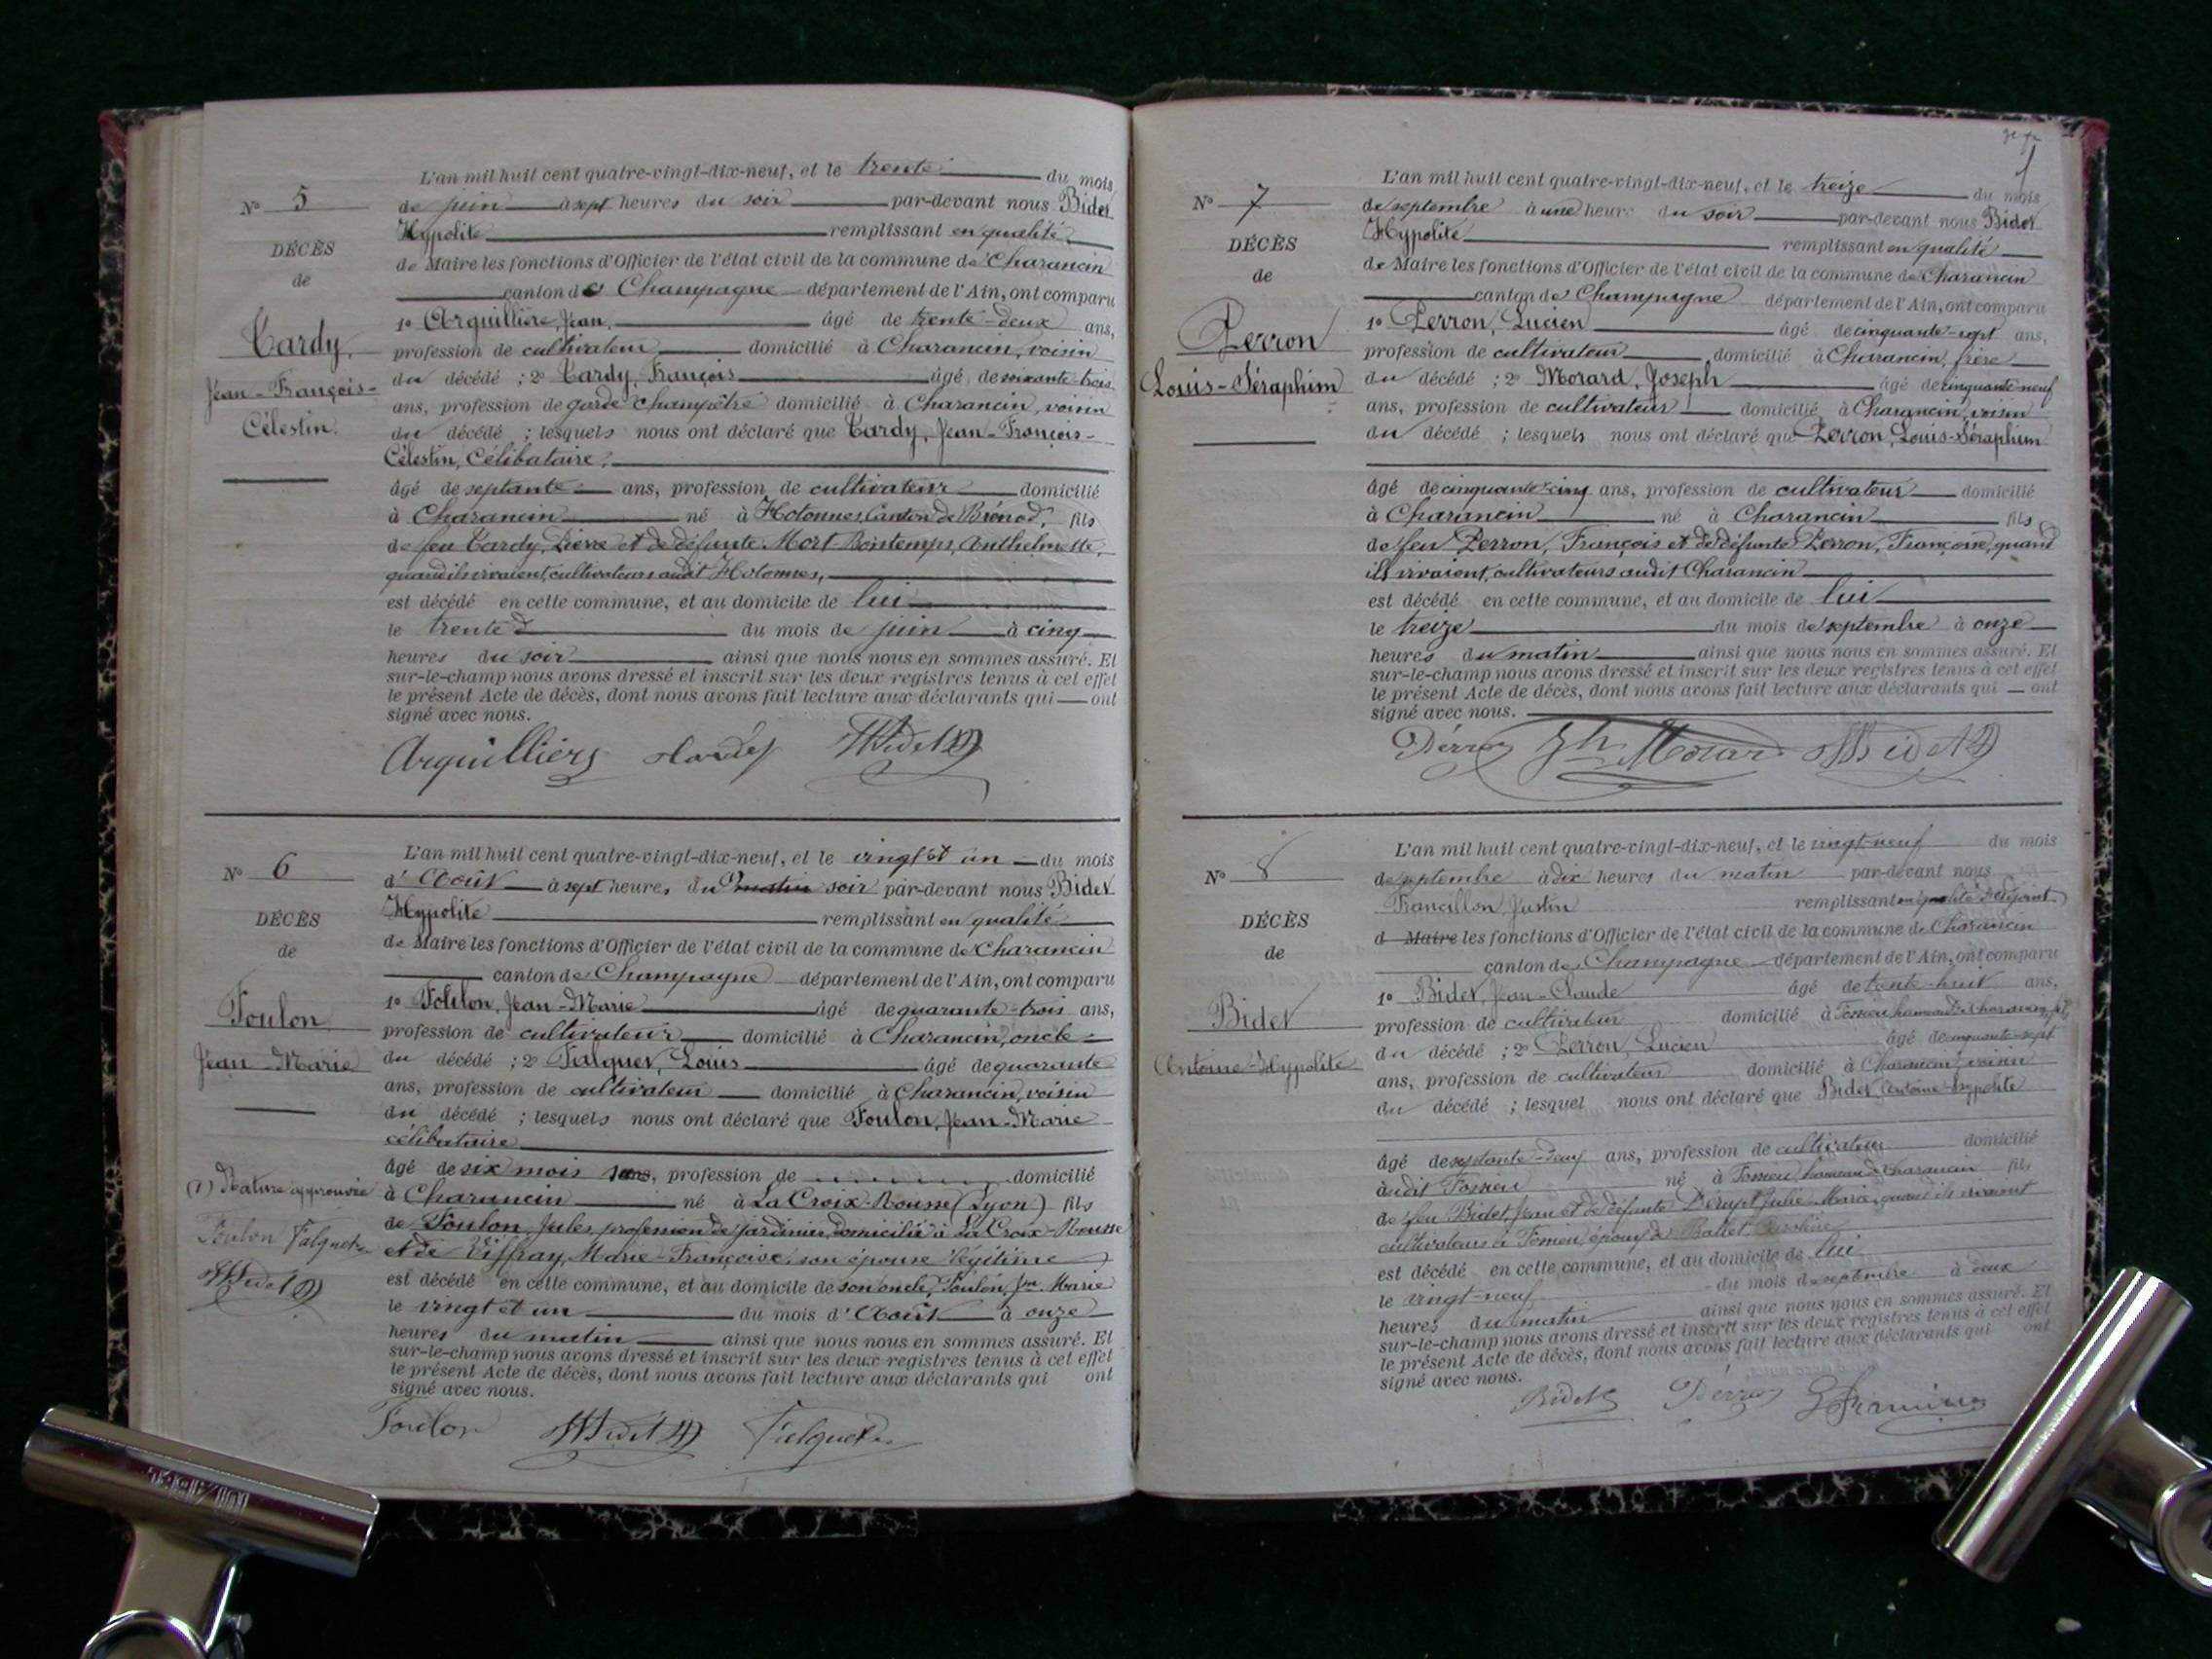 L'an mil huit cent quatre-vingt-dix-neuf, et le trente du mois
de juin à sept heures du soir par-devant nous Bidet
Hypolite remplissant en qualité
de Maire les fonctions d'Officier de l'état civil de la commune de Charancin
canton de Champagne département de l'Ain, ont comparu
1o Arquillière, Jean, âgé de trente-deux ans,
profession de cultivateur domicilié à Charancin, voisin
du décédé ; 2o Tardy, François âgé de soixante-trois
ans, profession de garde champêtre domicilié à Charancin, voisin
du décédé ; lesquels nous ont déclaré que Tardy, Jean-François-
Célestin, célibataire,
âgé de septante ans, profession de cultivateur domicilié
à Charancin né à Hotonnes, Canton de Brénod, fils
de feu Tardy, Pierre et de défunte Mort-Bontemps, Anthelmette,
quand ils vivaient, cultivateurs audit Hotonnes,
est décédé en cette commune, et au domicile de lui
le trente du mois de juin à cinq
heures du soir ainsi que nous nous en sommes assuré. Et
sur-le-champ nous avons dressé et inscrit sur les deux registres tenus à cet effet
le présent Acte de décès, dont nous avons fait lecture aux déclarants qui ont
signé avec nous.
No 5
DÉCÈS
de
Tardy,
Jean-François-
Célestin.
L'an mil huit cent quatre-vingt-dix-neuf, et le vingt et un du mois
d'Août à sept heures du matin soir par-devant nous Bidet
Hypolite remplissant en qualité
de Maire les fonctions d'Officier de l'état civil de la commune de Charancin
canton de Champagne département de l'Ain, ont comparu
1o Foulon, Jean-Marie âgé de quarante-trois ans,
profession de cultivateur domicilié à Charancin, oncle
du décédé ; 2o Falquet, Louis âgé de quarante
ans, profession de cultivateur domicilié à Charancin, voisin
du décédé ; lesquels nous ont déclaré que Foulon, Jean-Marie
célibataire
âgé de six mois ans, profession de domicilié
à Charancin né à La Croix-Rousse (Lyon) fils
de Foulon, Jules, profession de jardinier, domicilié à La Croix-Rousse
et de Viffray, Marie-Françoise, son épouse légitime
est décédé en cette commune, et au domicile de son oncle, Foulon, Jn Marie
le vingt et un du mois d'Août à onze
heures du matin ainsi que nous nous en sommes assuré. Et
sur-le-champ nous avons dressé et inscrit sur les deux registres tenus à cet effet
le présent Acte de décès, dont nous avons fait lecture aux déclarants qui ont
signé avec nous.
Foulon Falquet
No 6
DÉCÈS
de
Foulon
Jean-Marie
(1) Rature approuvée
Foulon Falquet
L'an mil huit cent quatre-vingt-dix-neuf, et le treize du mois
de septembre à une heure du soir par-devant nous Bidet
Hypolite remplissant en qualité
de Maire les fonctions d'Officier de l'état civil de la commune de Charancin
canton de Champagne département de l'Ain, ont comparu
1o Perron, Lucien âgé de cinquante-sept ans,
profession de cultivateur domicilié à Charancin, frère
du décédé ; 2o Morard, Joseph âgé de cinquante-neuf
ans, profession de cultivateur domicilié à Charancin, voisin
du décédé ; lesquels nous ont déclaré que Perron, Louis-Séraphim
âgé de cinquante-cinq ans, profession de cultivateur domicilié
à Charancin né à Charancin fils
de feu Perron, François et de défunte Perron, Françoise, quand
ils vivaient, cultivateurs audit Charancin
est décédé en cette commune, et au domicile de lui
le treize du mois de septembre à onze
heures du matin ainsi que nous nous en sommes assuré. Et
sur-le-champ nous avons dressé et inscrit sur les deux registres tenus à cet effet
le présent Acte de décès, dont nous avons fait lecture aux déclarants qui ont
signé avec nous.
No 7
DÉCÈS
de
Perron
Louis-Séraphim
L'an mil huit cent quatre-vingt-dix-neuf, et le vingt-neuf du mois
de septembre à dix heures du matin par-devant nous
Francillon Justin remplissant en qualité d'adjoint
d Maire les fonctions d'Officier de l'état civil de la commune de Charancin
canton de Champagne département de l'Ain, ont comparu
1o Bidet, Jean-Claude âgé de trente-huit ans,
profession de cultivateur domicilié à Fomieu hameau de Charancin, fils
du décédé ; 2o Perron, Lucien âgé de cinquante-sept
ans, profession de cultivateur domicilié à Charancin, voisin
du décédé ; lesquel nous ont déclaré que Bidet Antoine-Hypolite
âgé de septante-neuf ans, profession de cultivateur domicilié
audit Fomieu né à Fomieu, hameau de Charancin fils
de feu Bidet, Jean et de défunte Julie Marie, quand ils vivaient
cultivateurs à Fomieu, époux de Ballet, Caroline
est décédé en cette commune, et au domicile de lui
le vingt-neuf du mois de septembre à deux
heures du matin ainsi que nous nous en sommes assuré. Et
sur-le-champ nous avons dressé et inscrit sur les deux registres tenus à cet effet
le présent Acte de décès, dont nous avons fait lecture aux déclarants qui ont
signé avec nous.
No 8
DÉCÈS
de
Bidet
Antoine-Hypolite